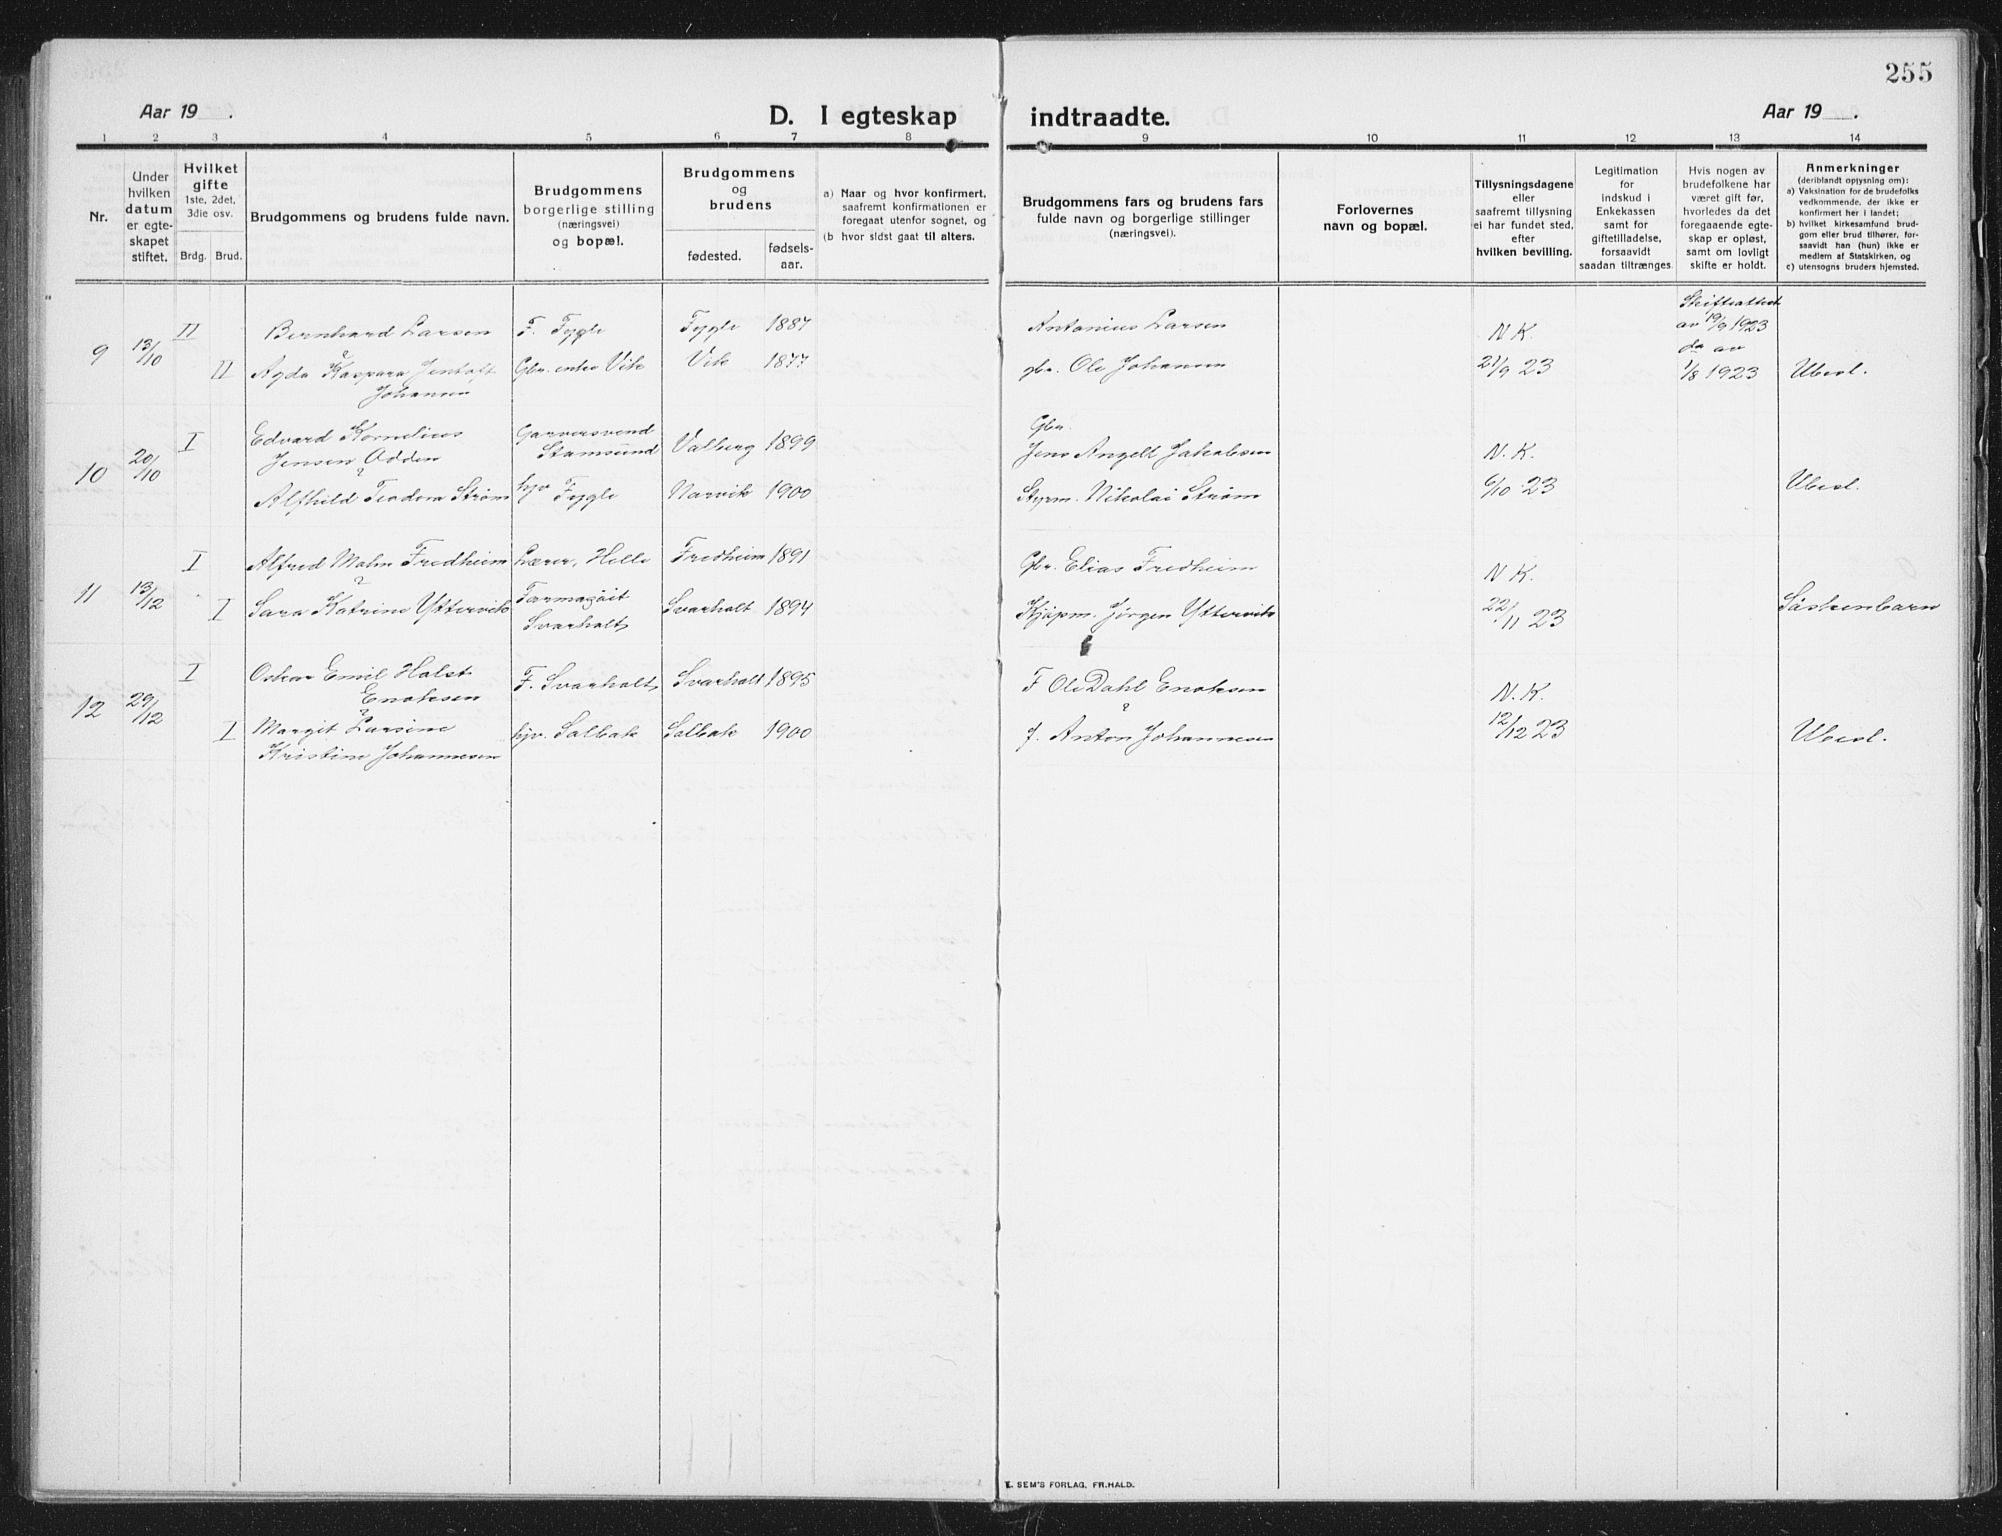 255
Aar 19 .
D. I egteskap
indtraadte.
Aar 19 .
1 2 3 4 5 6 7 8 9 10 11 12 13 14
Nr.
Under
hvilken
datum
er egte-
skapet
stiftet.
Hvilket
gifte
1ste, 2det,
3die osv.
Brdg. Brud.
Brudgommens og brudens fulde navn.
Brudgommens
borgerlige stilling
(næringsvei)
og bopæl.
Brudgommens
og
brudens
fødested.
fødsels-
aar.
a) Naar og hvor konfirmert,
saafremt konfirmationen er
foregaat utenfor sognet, og
(b hvor sidst gaat til alters.
Brudgommens fars og brudens fars
fulde navn og borgerlige stillinger
(næringsvei).
Forlovernes
navn og bopæl.
Tillysningsdagene
eller
saafremt tillysning
ei har fundet sted,
efter
hvilken bevilling.
Legitimation
for
indskud i
Enkekassen
samt for
giftetilladelse,
forsaavidt
saadan tiltrænges.
Hvis nogen av
brudefolkene har
været gift før,
hvorledes da det
foregaaende egte-
skap er opløst,
samt om lovligt
skifte er holdt.
Anmerkninger
(deriblandt oplysning om):
a) Vaksination for de brudefolks
vedkommende, der ikke er
konfirmert her i landet;
b) hvilket kirkesamfund brud-
gom eller brud tilhører, for-
saavidt han (hun) ikke er
medlem av Statskirken, og
c) utensogns bruders hjemsted.
9 13/10 II Bernhard Larsen F. Fygle Fygle 1887 Antonius Larsen N. K. Skifteattest
av 19/9 1923
II Agda Kaspara Jentoft Gbr. enke Vik Vik 1877 gbr. Ole Johansen 21/9 23 do av
1/8 1923 Ubesl.
Johansen
10 20/10 I Edvard Kornelius Garversvend Valberg 1899 Gbr.
Jensen Odden Stamsund Jens Angell Jakobsen N. K.
Alfhild Teodora Strøm hjv Fygle Narvik 1900 Styrm. Nikolai Strøm 6/10 23 Ubesl.
11 13/12 I Alfred Malm Fredheim Lærer, Helle Fredheim 1891 Gbr. Elias Fredheim N. K.
I Sara Katrine Yttervik Svarholt 1894 Kjøpm. Jørgen Yttervik 22/11 23 Søskenbarn
Svarholt
12 29/12 I Oskar Emil Holst F. Svarholt Svarholt 1895 F Ole Dahl Enoksen N. K.
Enoksen
I Margit Larsine hjv. Solbak Solbak 1900 f. Anton Johannesen 12/12 23 Ubesl.
Kristine Johannesen
E. SEM'S FORLAG, FR.HALD.